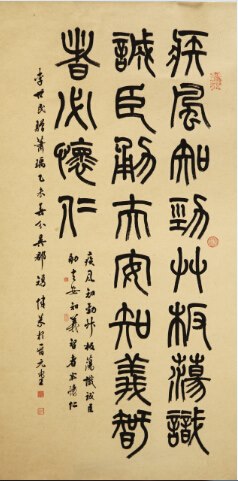 疾風知勁艸板蕩識
誠臣勇夫安知義智
者必懷仁
疾风知勁草板蕩識誠臣
勇夫安知義智者必懷仁
李世民贈蕭瑀乙未